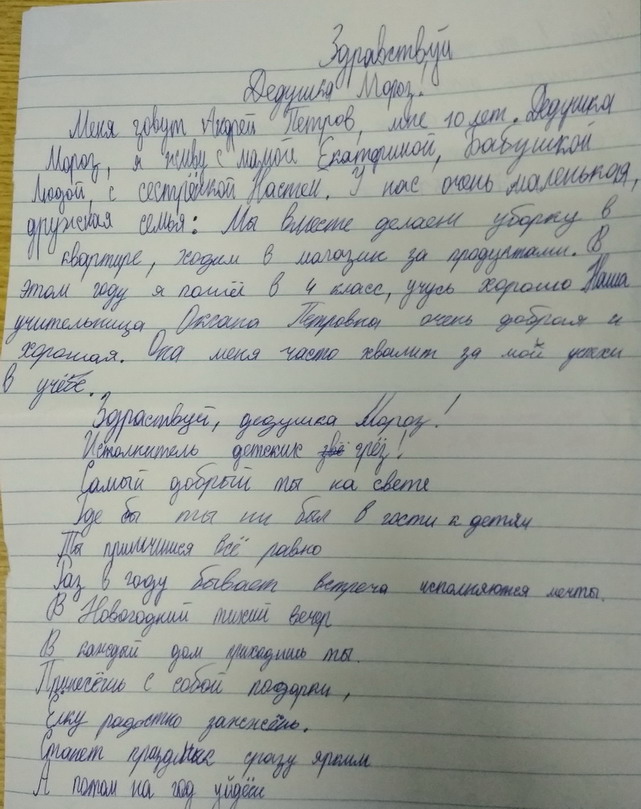 Здравствуй
Дедушка Мороз!
Меня зовут Андрей Петров, мне 10 лет. Дедушка
Мороз, я живу с мамой Екатериной, Бабушкой
Людой, с сестрёнкой Настей. У нас очень маленькая,
дружская семья: Мы вместе делаем уборку в
квартире, ходим в магазин за продуктами. В
этом году я пошёл в 4 класс, учусь хорошо Наша
учительница Оксана Петровна очень добрая и
хорошая. Она меня часто хвалит за мой успехи
в учёбе.
Здраствуй, дедушка Мороз!
Исполнитель детских грёз!
Самый добрый ты на свете
Где бы ты ни был в гости к детям
Ты примчишся всё равно
Раз в году бывает встреча исполняются мечты.
В Новогодний тихий вечер
В каждый дом приходишь ты.
Принесёшь с собой подарки,
Ёлку радостно зажжёшь.
Станет праздник сразу ярким
А потом на год уйдёш